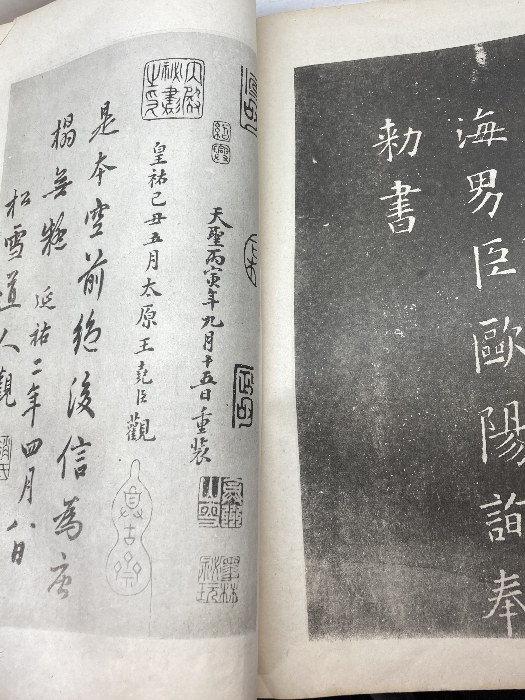 海男臣歐陽詢奉
勅書
天聖丙寅年九月十五日重裝
皇祐己丑五月太原王堯臣觀
是本空前絕後信為唐
搨無疑 延祐二年四月八日
松雪道人觀
墨林祕玩